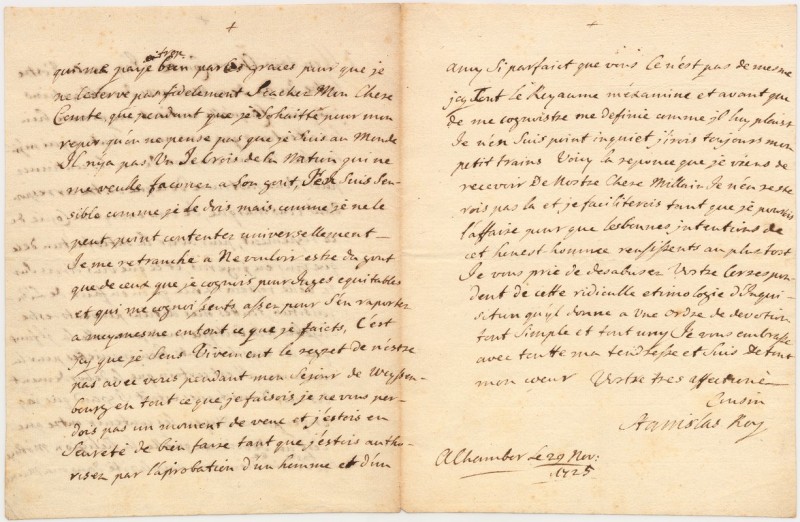 +
et trop
qu'il me paye bien par ces graces pour que je
ne le serve pas fidelement Scachez Mon Chere
Comte, que pendant que je Sohaitte pour mon
repos qu'on ne pense pas que je Suis au Monde
Il n'y a pas Un Je Crois de la Nation qui ne
me veule faconer a Son gout, J'en Suis Sen-
sible comme je le dois mais comme je ne le
peut point contenter universellement
Je me retranche a Ne vouloir estre du gout
que de ceux que je cognois pour Juges equitables
et qui me cognoissents assez pour S'en raporter
a moy mesme en tout ce que je faicts, C'est
icy que je Sens Vivement le regret de n'estre
pas avec vous pendant mon Sejour de Weyssen-
bourg en tout ce que je faisois je ne vous per-
dois pas un moment de veue et j'estois en
Seureté de bien faire tant que j'estois autho-
risez par l'aprobation d'un homme et d'un
+
amy Si parfaict que vous Ce n'est pas de mesme
icy Tout le Royaume m'examine et avant que
de me cognoistre me definie comme il luy plaist
Je n'en Suis point inquiet j'irois toujours mon
petit trains Voicy la reponce que je viens de
recevoir De Nostre Chere Millain Je n'en reste
rois pas la et je faciliterois tant que je pourois
l'affaire pour que les bonnes jntentions de
cet honest hommee reussissents au plus tost
Je vous prie de desabusez Vostre Correspon
dent de cette ridiculle etimologie d'Inqui-
sition qu'jl donne a Une Ordre de devotion
tout Simple et tout uny Je vous embrasse
avec toutte ma tendresse et Suis De tout
mon coeur Vostre tres affectioné
Cousin
Stanislas Roy
A Chambor Le 29 Nov:
1725